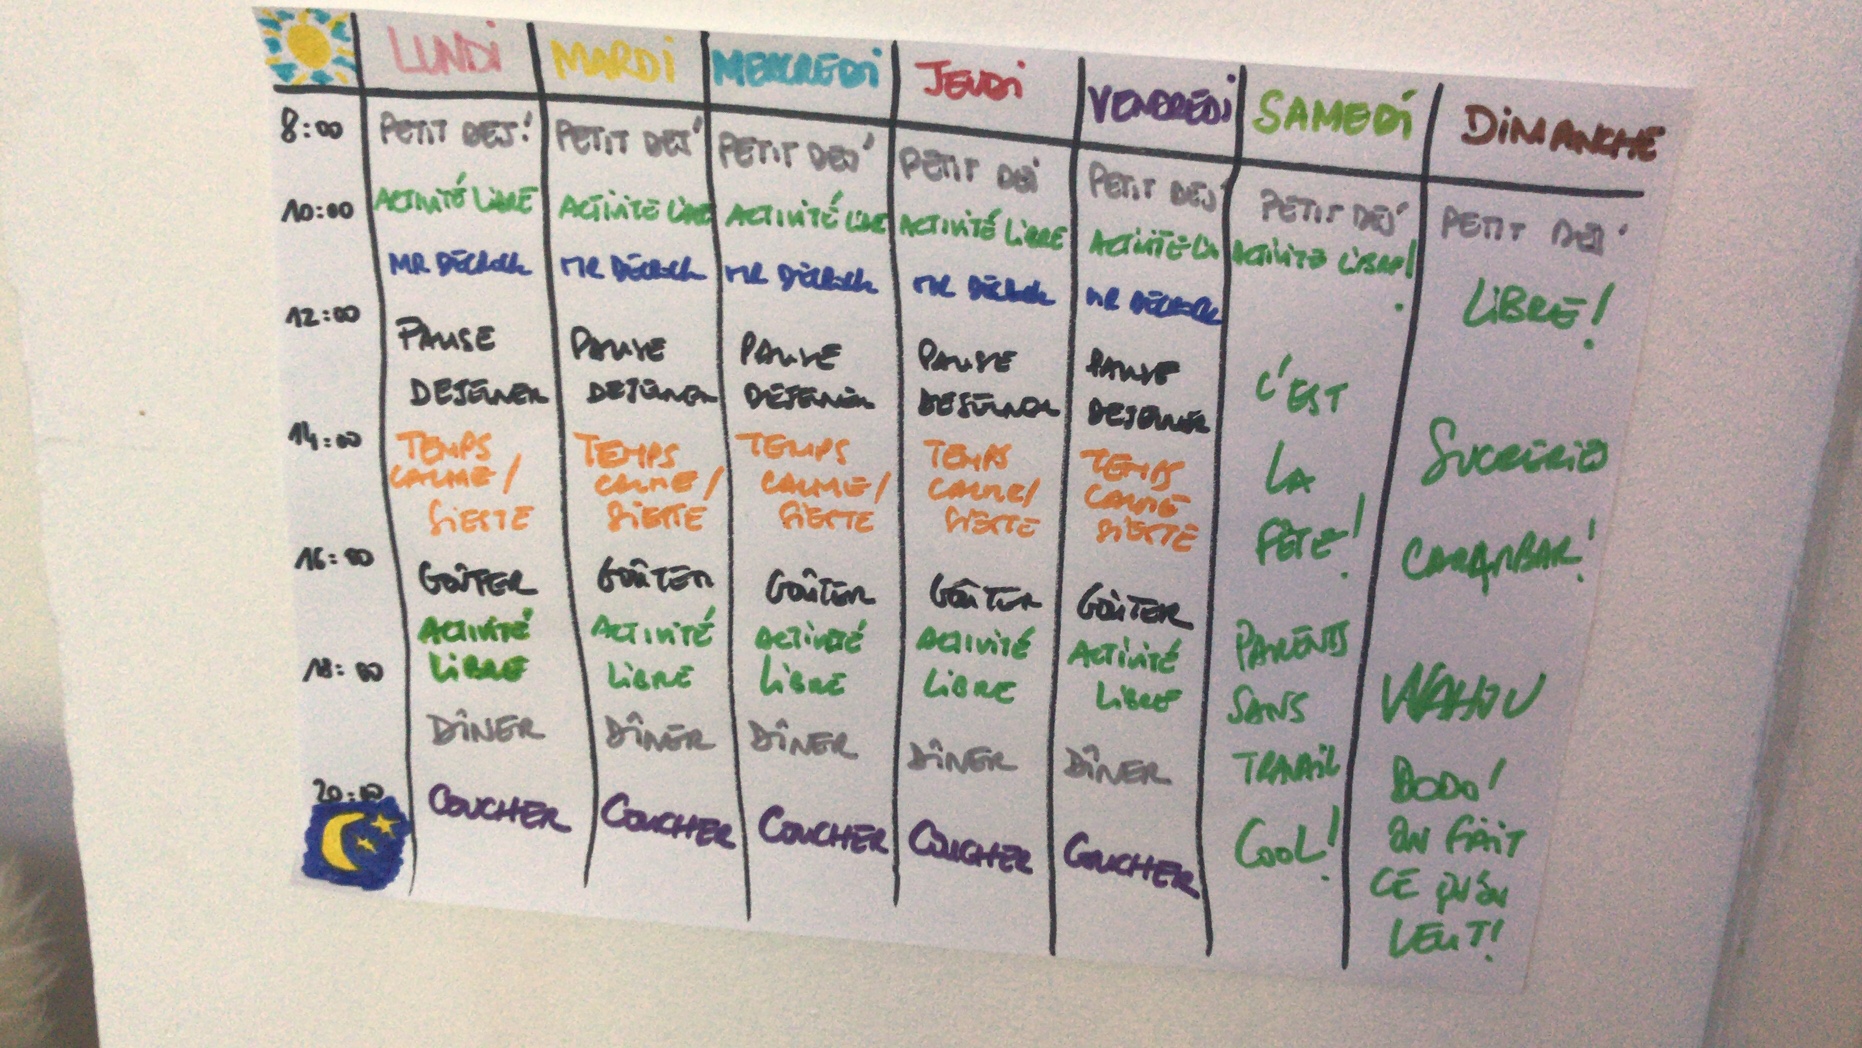 LUNDI MARDI MERCREDI JEUDI VENDREDI SAMEDI DIMANCHE
8:00 PETIT DEJ' PETIT DEJ' PETIT DEJ' PETIT DEJ' PETIT DEJ' PETIT DEJ' PETIT DEJ'
10:00 ACTIVITÉ LIBRE ACTIVITÉ LIBRE ACTIVITÉ LIBRE ACTIVITÉ LIBRE ACTIVITÉ ACTIVITE LIBRE! LIBRE!
MR MR MR MR MR
12:00 PAUSE PAUSE PAUSE PAUSE PAUSE C'EST
DEJEUNER DEJEUNER DEJEUNER DEJEUNER DEJEUNER
14:00 TEMPS TEMPS TEMPS TEMPS TEMPS LA SUCRERIES
CALME/ CALME/ CALME/ CALME/ CALME
SIESTE SIESTE SIESTE SIESTE SIESTE FÊTE! CARAMBAR!
16:00 GOÛTER GOÛTER GOÛTER GOÛTER GOÛTER
ACTIVITÉ ACTIVITÉ ACTIVITÉ ACTIVITÉ ACTIVITÉ PARENTS
18:00 LIBRE LIBRE LIBRE LIBRE LIBRE SANS WAHOU
DÎNER DÎNER DÎNER DÎNER DÎNER TRAVAIL DODO!
20:00 COUCHER COUCHER COUCHER COUCHER COUCHER COOL! ON FAIT
CE QU'ON
VEUT!